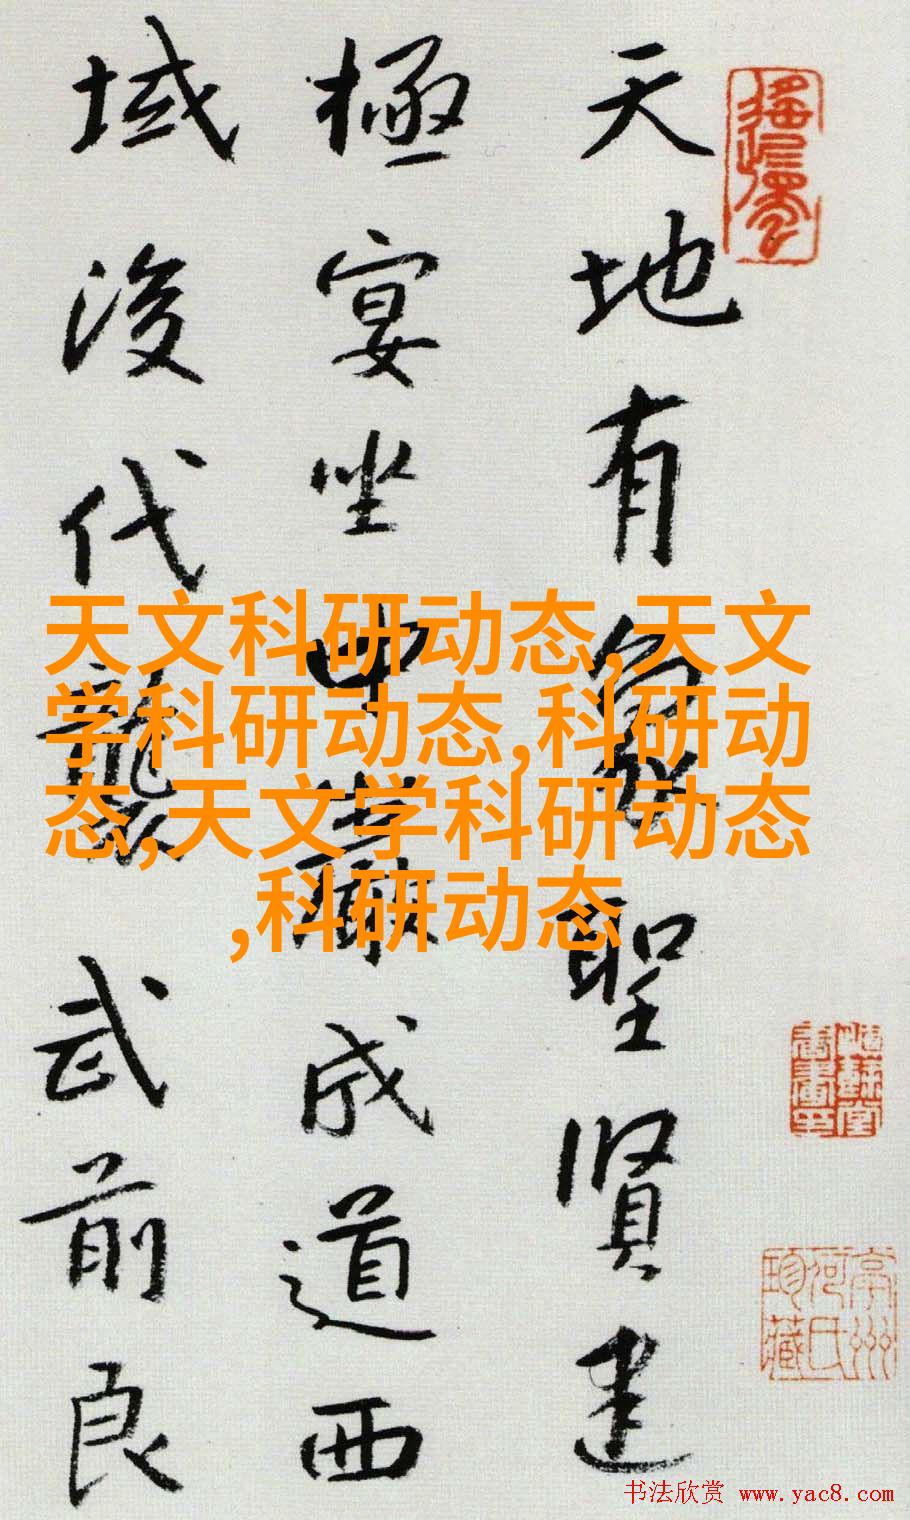 天地有象聖賢建
極宴坐中嚴成道西
域後代襲武前良
天文科研动态,天文
学科研动态,科研动
态,天文学科研动态
,科研动态
亭州
何氏
珍藏
书法欣赏 www.yac8.com